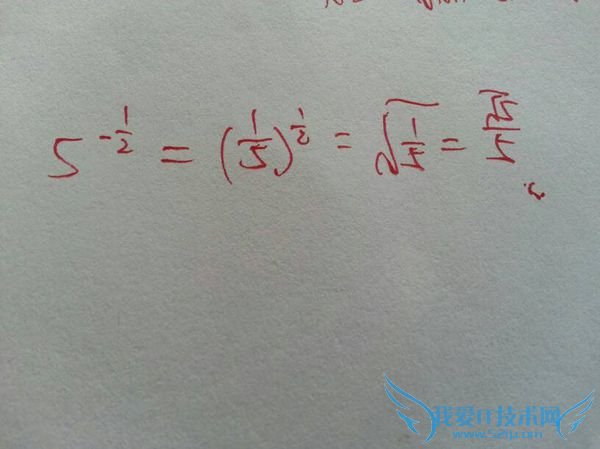 5^{-\frac{1}{2}} = (\frac{1}{5})^{\frac{1}{2}} = \sqrt{\frac{1}{5}} = \frac{\sqrt{5}}{5}
我爱IT技术网
www.52ij.com